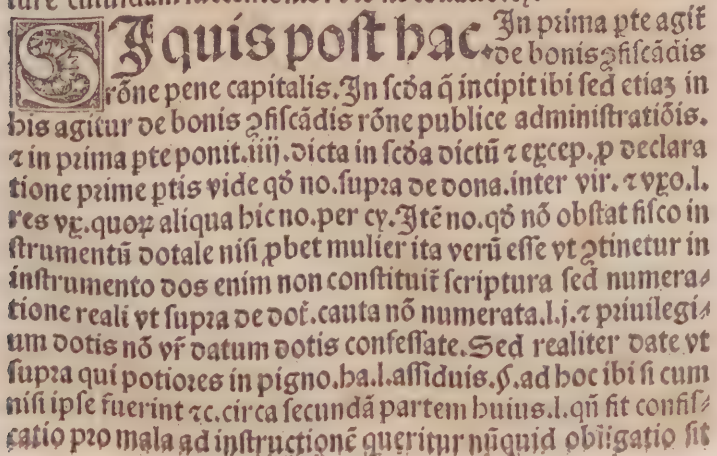 SI quis post hac. In prima ꝑte agit᷑
de bonis ꝯfiscādis
rōne pene capitalis. In scďa q̄ incipit ibi sed etiaʒ in
his agitur de bonis ꝯfiscādis rōne publice administratiōis.
⁊ in prima ꝑte ponit.iiij. dicta in scďa dictū ⁊ excep. ꝓ declara
tione prime ꝑtis vide qď no. supra de dona. inter vir. ⁊ vxo. l.
res vx. quoꝝ aliqua hic no. per cy. Itē no. qď nō obstat fisco in
strumentū dotale nisi ꝓbet mulier ita verū esse vt ꝯtinetur in
instrumento dos enim non constituit᷑ scriptura sed numera⸗
tione reali vt supra de dot̄. cauta nō numerata. l. j. ⁊ priuilegi⸗
um dotis nō vr̄ datum dotis confessate. Sed realiter date vt
supra qui potiores in pigno. ha. l. assiduis. §. ad hoc ibi si cum
nisi ipse fuerint ⁊c. circa secundā partem huius. l. qn̄ fit confis⸗
catio pro mala ad instructionē queritur nūquid obligatio sit